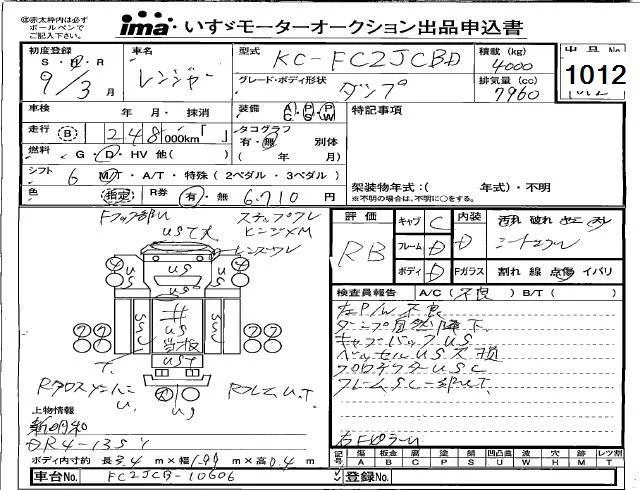 ◎赤太枠内は必ず
ボールペンで
ご記入下さい。
ima いすゞモーターオークション出品申込書
初度登録
S・H・R
9/3月
車名
レンジャー
型式
KC-FC2JCBD
積載(kg)
4000
グレード・ボディ形状
ダンプ
排気量(cc)
7960
出品No
1012
車検 年 月・抹消
走行 B 248,000km「 」
燃料 G・D・HV 他( )
装備 AC PS PW
タコグラフ
有・無 別体
( 年 月)
特記事項
シフト 6 M/T・A/T・特殊(2ペダル・3ペダル)
色 指定 R券 有・無 6,710円
架装物年式:( 年式)・不明
※不明の場合は、不明に○をする。
評価 RB
キャブ C
フレーム D
ボディ D
内装 D
Fガラス
割れ 線 点傷 イバリ
検査員報告 A/C(不良) B/T( )
左P/W不良
ダンプ自然降下
キャブバックUS
ベッセルUS欠損
プロテクターUSC
フレームSC一部T.
右Fピラーu
Fフック部U
ステップワレ
ヒンジXM
UST大
レンズワレ
US
US
#
US
当板
UST
Rクロスメンバー
U.
US
RフレームU.T.
上物情報
新明和
DR4-13SY
ボディ内寸約 長3.4m×幅1.99m×高0.4m
記号 傷 板金 腐 塗 部 凹凸曲 波 穴 時 レツ割
A B C P S U W H M T
車台No. FC2JCB-10606
登録No.